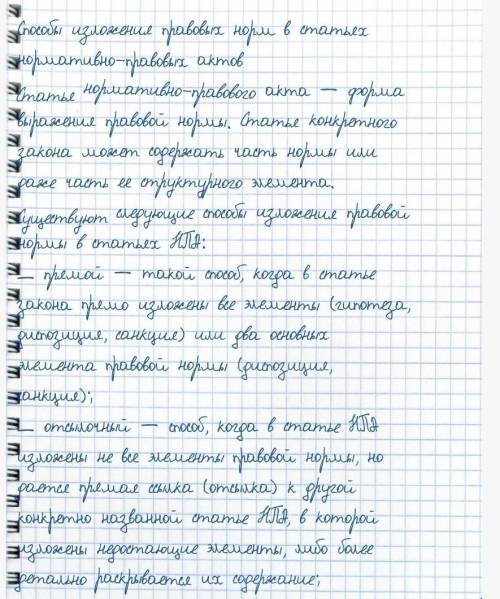 Способы изложения правовых норм в статьях
нормативно-правовых актов
Статья нормативно-правового акта — форма
выражения правовой нормы. Статья конкретного
закона может содержать часть нормы или
даже часть ее структурного элемента.
Существуют следующие способы изложения правовой
нормы в статьях НПА:
— прямой — такой способ, когда в статье
закона прямо изложены все элементы (гипотеза,
диспозиция, санкция) или два основных
элемента правовой нормы (диспозиция,
санкция);
— отсылочный — способ, когда в статье НПА
изложены не все элементы правовой нормы, но
дается прямая ссылка (отсылка) к другой
конкретно названной статье НПА, в которой
изложены недостающие элементы, либо более
детально раскрывается их содержание;